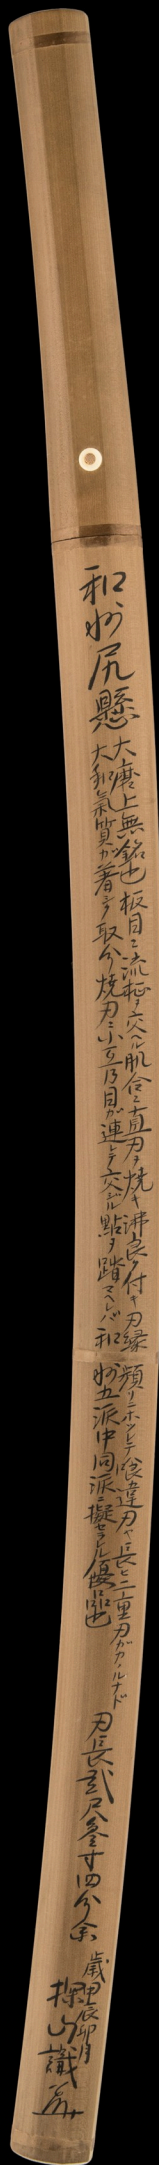 和州尻懸
大磨上無銘也 板目ニ流柾ヲ交ヘル肌合ニ直刃ヲ焼キ沸良ク付キ刃縁頻リニホツレテ喰違刃ヤ長ヒ二重刃ガカヽルナド
大和氣質ガ著シク取分焼刃ニ小互乃目ガ連レテ交ジル點ヲ踏マヘレバ和州五派中同派ニ擬セラル優品也
刃長貳尺参寸四分余
歳甲辰卯月
探山識